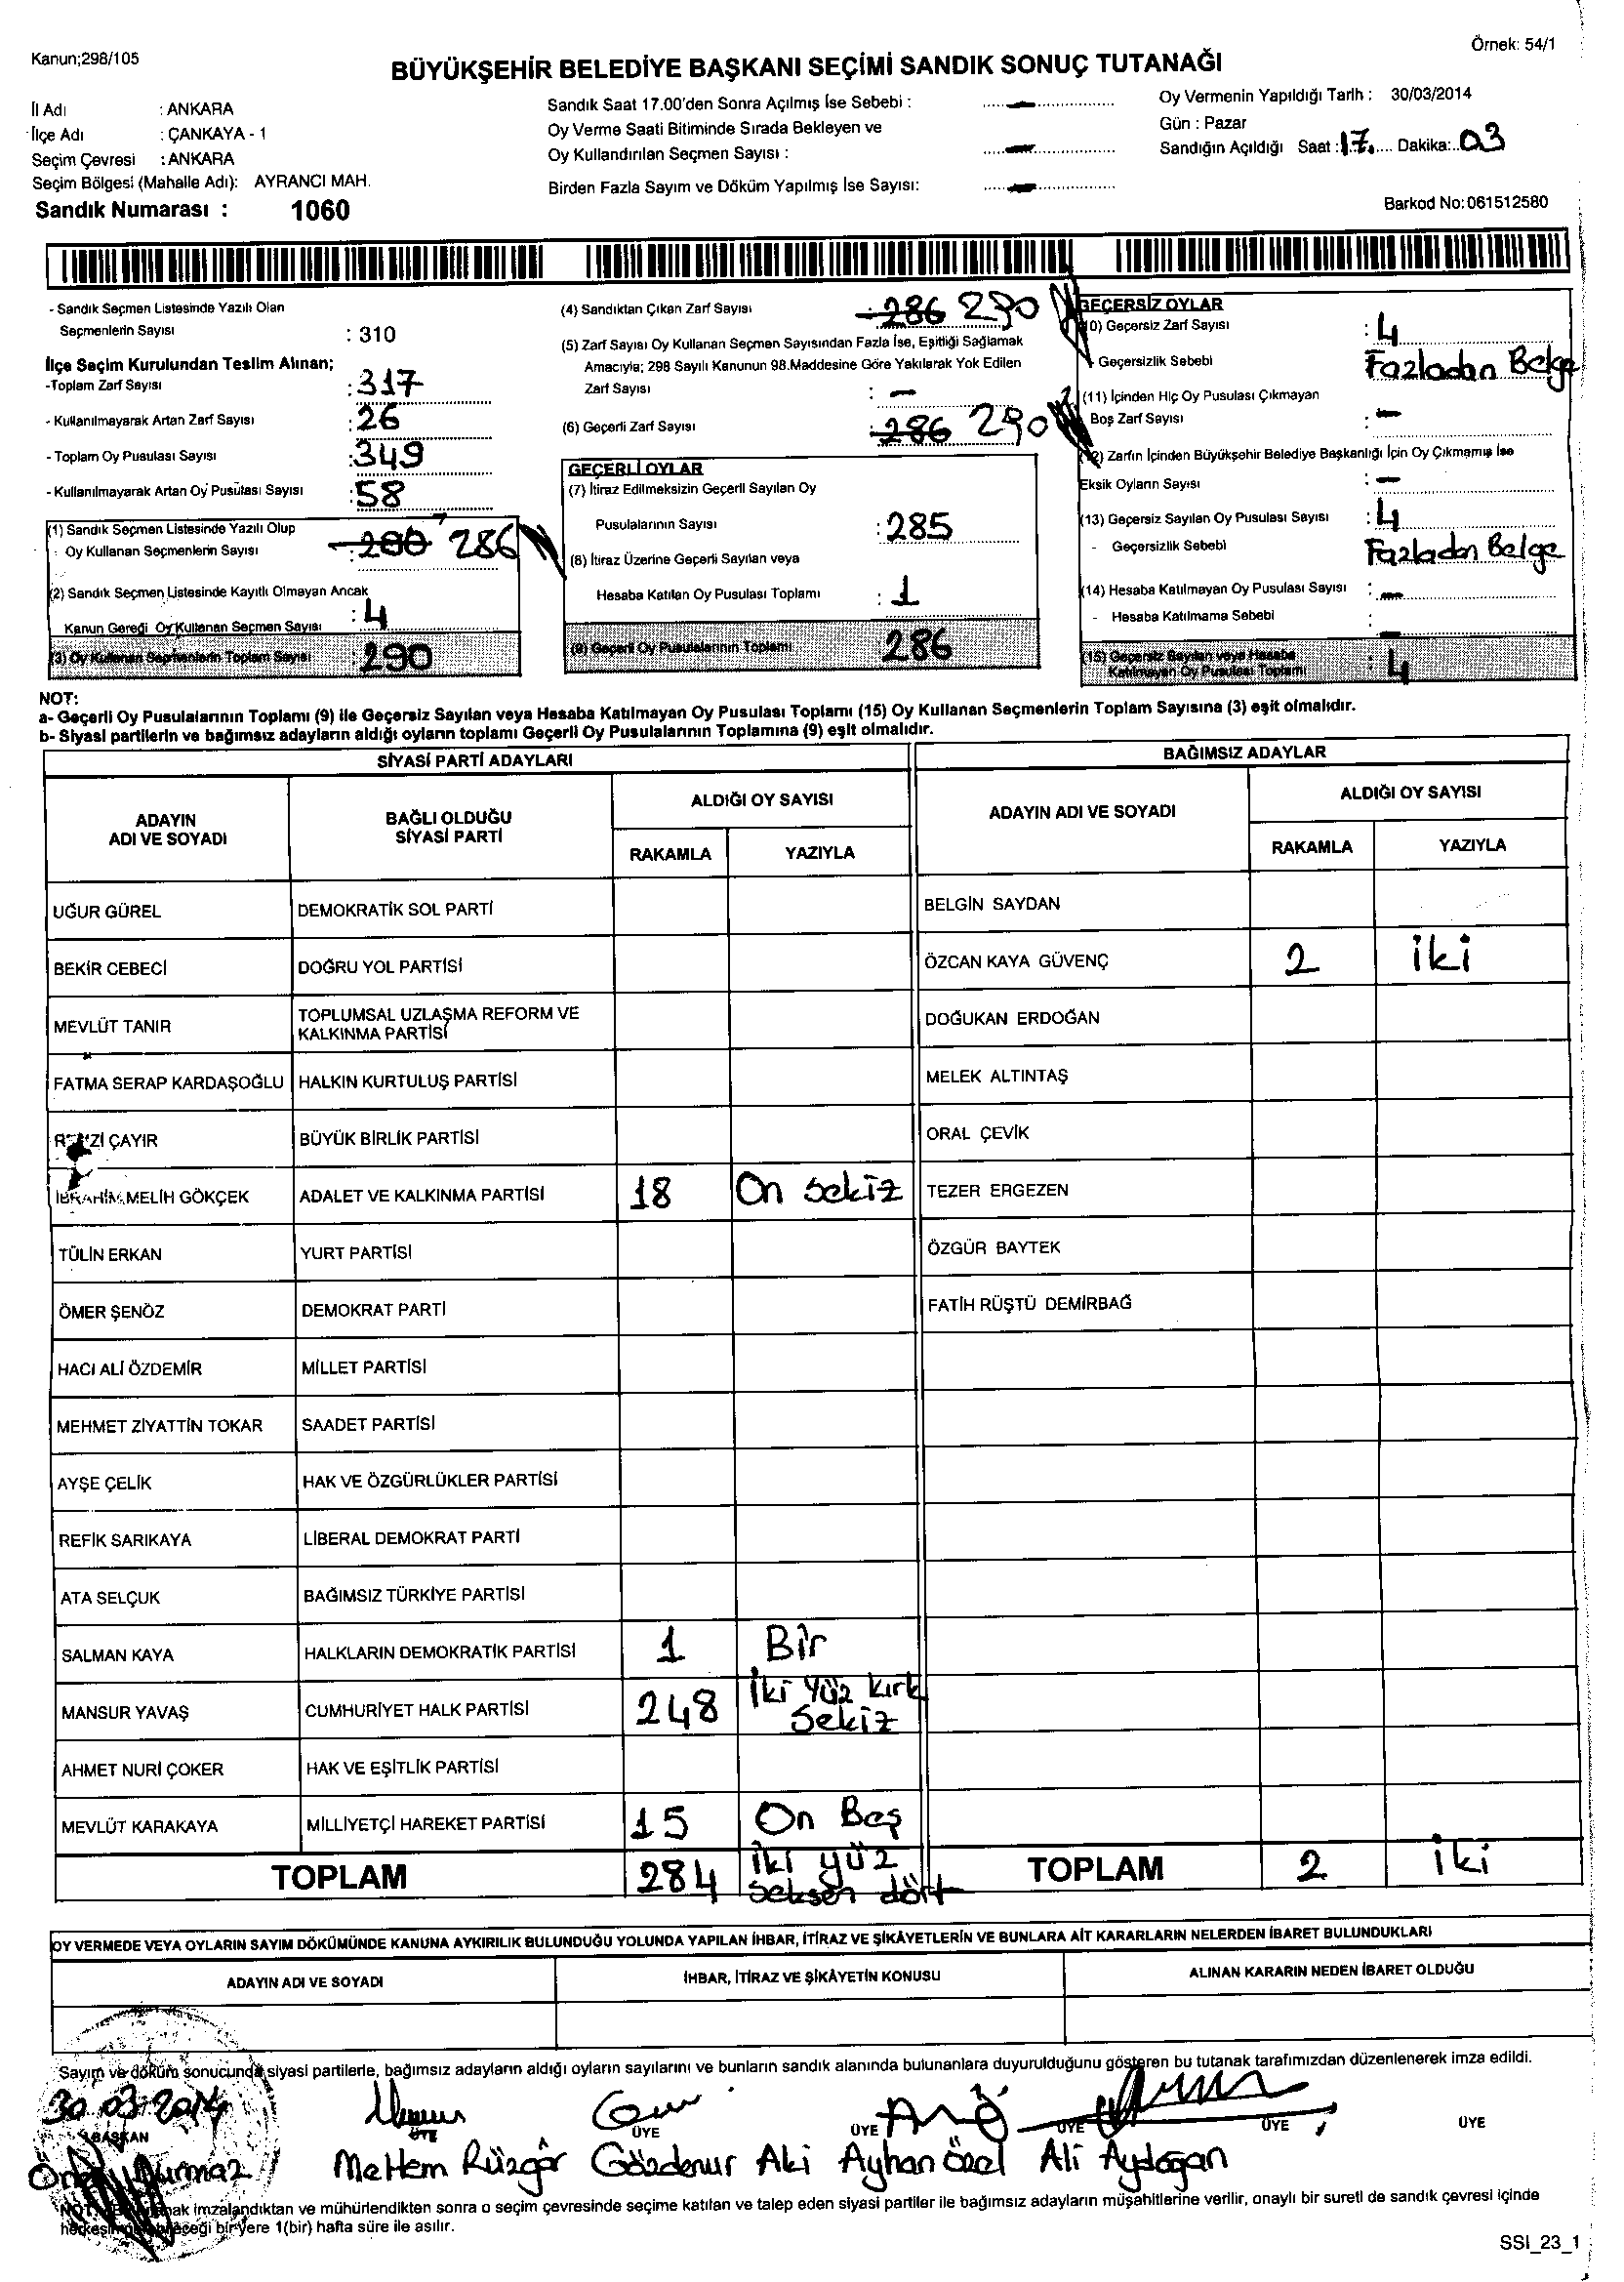 Kanun;298/105
Örnek: 54/1
BÜYÜKŞEHİR BELEDİYE BAŞKANI SEÇİMİ SANDIK SONUÇ TUTANAĞI
İl Adı : ANKARA
İlçe Adı : ÇANKAYA - 1
Seçim Çevresi : ANKARA
Seçim Bölgesi (Mahalle Adı): AYRANCI MAH.
Sandık Numarası : 1060
Sandık Saat 17.00'den Sonra Açılmış İse Sebebi : —
Oy Verme Saati Bitiminde Sırada Bekleyen ve
Oy Kullandırılan Seçmen Sayısı : —
Birden Fazla Sayım ve Döküm Yapılmış İse Sayısı: —
Oy Vermenin Yapıldığı Tarih : 30/03/2014
Gün : Pazar
Sandığın Açıldığı Saat :17.... Dakika:..03
Barkod No:061512580
- Sandık Seçmen Listesinde Yazılı Olan
Seçmenlerin Sayısı : 310
İlçe Seçim Kurulundan Teslim Alınan;
-Toplam Zarf Sayısı : 317
- Kullanılmayarak Artan Zarf Sayısı : 26
- Toplam Oy Pusulası Sayısı : 349
- Kullanılmayarak Artan Oy Pusulası Sayısı : 58
(1) Sandık Seçmen Listesinde Yazılı Olup
Oy Kullanan Seçmenlerin Sayısı : 286
(2) Sandık Seçmen Listesinde Kayıtlı Olmayan Ancak
Kanun Gereği Oy Kullanan Seçmen Sayısı : 4
(3) Oy Kullanan Seçmenlerin Toplam Sayısı : 290
(4) Sandıktan Çıkan Zarf Sayısı : 286 290
(5) Zarf Sayısı Oy Kullanan Seçmen Sayısından Fazla İse, Eşitliği Sağlamak
Amacıyla; 298 Sayılı Kanunun 98.Maddesine Göre Yakılarak Yok Edilen
Zarf Sayısı : —
(6) Geçerli Zarf Sayısı : 286 290
GEÇERLİ OYLAR
(7) İtiraz Edilmeksizin Geçerli Sayılan Oy
Pusulalarının Sayısı : 285
(8) İtiraz Üzerine Geçerli Sayılan veya
Hesaba Katılan Oy Pusulası Toplamı : 1
(9) Geçerli Oy Pusulalarının Toplamı 286
GEÇERSİZ OYLAR
(10) Geçersiz Zarf Sayısı : 4
- Geçersizlik Sebebi Fazladan Belge
(11) İçinden Hiç Oy Pusulası Çıkmayan
Boş Zarf Sayısı : —
(12) Zarfın İçinden Büyükşehir Belediye Başkanlığı İçin Oy Çıkmamış İse
Eksik Oyların Sayısı : —
(13) Geçersiz Sayılan Oy Pusulası Sayısı : 4
- Geçersizlik Sebebi Fazladan Belge
(14) Hesaba Katılmayan Oy Pusulası Sayısı : —
- Hesaba Katılmama Sebebi : —
(15) Geçersiz Sayılan veya Hesaba
Katılmayan Oy Pusulası Toplamı : 4
NOT:
a- Geçerli Oy Pusulalarının Toplamı (9) ile Geçersiz Sayılan veya Hesaba Katılmayan Oy Pusulası Toplamı (15) Oy Kullanan Seçmenlerin Toplam Sayısına (3) eşit olmalıdır.
b- Siyasi partilerin ve bağımsız adayların aldığı oyların toplamı Geçerli Oy Pusulalarının Toplamına (9) eşit olmalıdır.
SİYASİ PARTİ ADAYLARI
ADAYIN ADI VE SOYADI BAĞLI OLDUĞU SİYASİ PARTİ ALDIĞI OY SAYISI
RAKAMLA YAZIYLA
UĞUR GÜREL DEMOKRATİK SOL PARTİ
BEKİR CEBECİ DOĞRU YOL PARTİSİ
MEVLÜT TANIR TOPLUMSAL UZLAŞMA REFORM VE
KALKINMA PARTİSİ
FATMA SERAP KARDAŞOĞLU HALKIN KURTULUŞ PARTİSİ
ÇAYIR BÜYÜK BİRLİK PARTİSİ
İBRAHİM MELİH GÖKÇEK ADALET VE KALKINMA PARTİSİ 18 On sekiz
TÜLİN ERKAN YURT PARTİSİ
ÖMER ŞENÖZ DEMOKRAT PARTİ
HACI ALİ ÖZDEMİR MİLLET PARTİSİ
MEHMET ZİYATTİN TOKAR SAADET PARTİSİ
AYŞE ÇELİK HAK VE ÖZGÜRLÜKLER PARTİSİ
REFİK SARIKAYA LİBERAL DEMOKRAT PARTİ
ATA SELÇUK BAĞIMSIZ TÜRKİYE PARTİSİ
SALMAN KAYA HALKLARIN DEMOKRATİK PARTİSİ 1 Bir
MANSUR YAVAŞ CUMHURİYET HALK PARTİSİ 248 İki Yüz kırk
Sekiz
AHMET NURİ ÇOKER HAK VE EŞİTLİK PARTİSİ
MEVLÜT KARAKAYA MİLLİYETÇİ HAREKET PARTİSİ 15 On Beş
TOPLAM 284 İki yüz
seksen dört
BAĞIMSIZ ADAYLAR
ADAYIN ADI VE SOYADI ALDIĞI OY SAYISI
RAKAMLA YAZIYLA
BELGİN SAYDAN
ÖZCAN KAYA GÜVENÇ 2 iki
DOĞUKAN ERDOĞAN
MELEK ALTINTAŞ
ORAL ÇEVİK
TEZER ERGEZEN
ÖZGÜR BAYTEK
FATİH RÜŞTÜ DEMİRBAĞ
TOPLAM 2 iki
OY VERMEDE VEYA OYLARIN SAYIM DÖKÜMÜNDE KANUNA AYKIRILIK BULUNDUĞU YOLUNDA YAPILAN İHBAR, İTİRAZ VE ŞİKÂYETLERİN VE BUNLARA AİT KARARLARIN NELERDEN İBARET BULUNDUKLARI
ADAYIN ADI VE SOYADI İHBAR, İTİRAZ VE ŞİKÂYETİN KONUSU ALINAN KARARIN NEDEN İBARET OLDUĞU
Sayım ve döküm sonucunda siyasi partilerle, bağımsız adayların aldığı oyların sayılarını ve bunların sandık alanında bulunanlara duyurulduğunu gösteren bu tutanak tarafımızdan düzenlenerek imza edildi.
30.03.2014
BAŞKAN ÜYE ÜYE ÜYE ÜYE ÜYE ÜYE
Durmaz Meltem Rüzgâr Gözdenur Aki Ayhan Özel Ali Aydoğan
imzalandıktan ve mühürlendikten sonra o seçim çevresinde seçime katılan ve talep eden siyasi partiler ile bağımsız adayların müşahitlerine verilir, onaylı bir sureti de sandık çevresi içinde
bir yere 1(bir) hafta süre ile asılır.
SSI_23_1